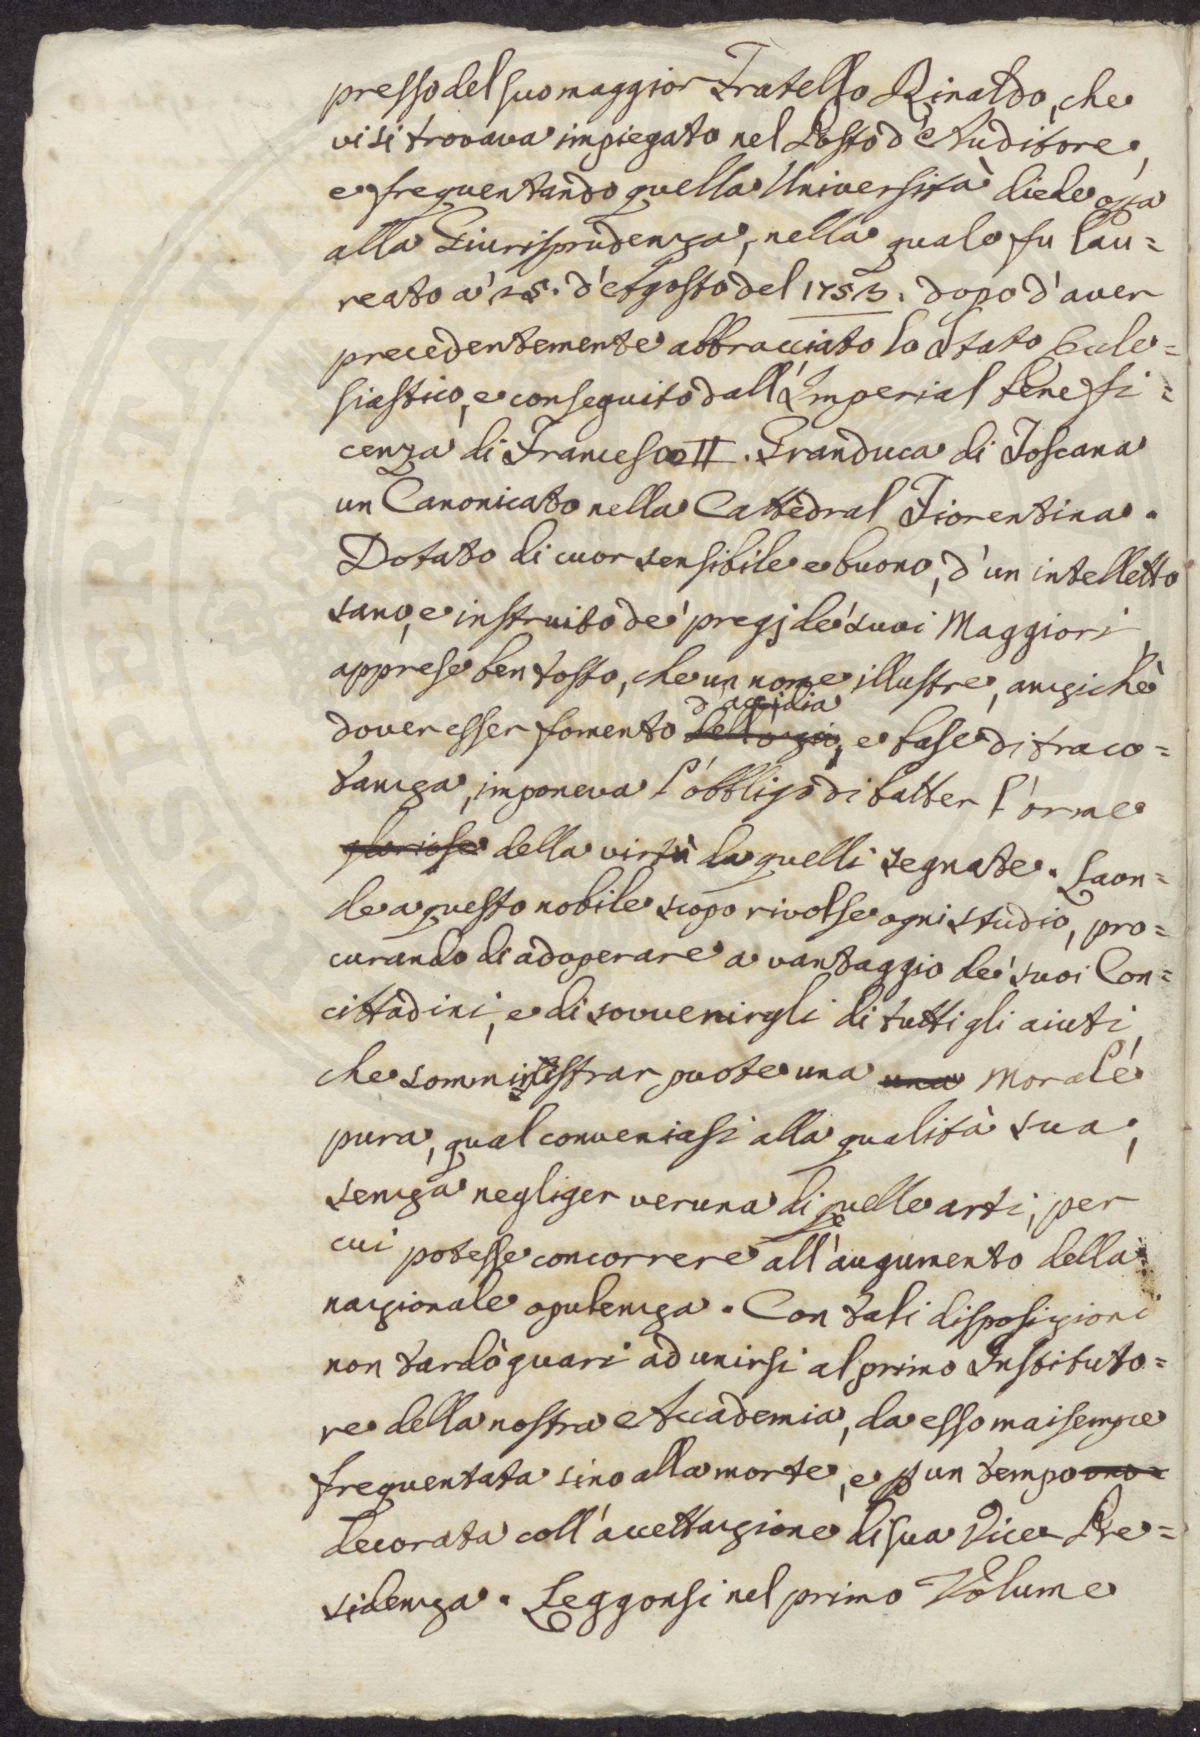 presso del suo maggior Fratello Rinaldo, che
vi si trovava impiegato nel Posto d'Auditore,
e frequentando quella Università diede opra
alla Giurisprudenza, nella quale fu lau=
reato a' 25. d'Agosto del 1753. dopo d'aver
precedentemente abbracciato lo Stato Eccle=
siastico, e conseguito dall'Imperial benefi=
cenza di Francesco II. Granduca di Toscana
un Canonicato nella Cattedral Fiorentina.
Dotato di cuor sensibile e buono, d'un intelletto
sano, e instruito de' pregj de' suoi Maggiori,
apprese ben tosto, che un nome illustre, anzichè
d'accidia
dover esser fomento dell'ozio, e base di traco=
tanza, imponeva l'obbligo di batter l'orme
gloriose della virtù da quelli segnate. Laon=
de a questo nobile scopo rivolse ogni studio, pro=
curando di adoperare a vantaggio de' suoi Con=
cittadini, e di sovvenirgli di tutti gli aiuti,
che somministrar puote una una Morale
pura, qual conveniasi alla qualità sua,
senza negliger veruna di quelle arti, per
cui potesse concorrere all'augumento della
nazionale opulenza. Con tali disposizioni
non tardò guari ad unirsi al primo Instituto=
re della nostra Accademia, da esso mai sempre
frequentata sino alla morte, e p un tempo ono=
decorata coll'accettazione di sua Vice Pre=
sidenza. Leggonsi nel primo Volume